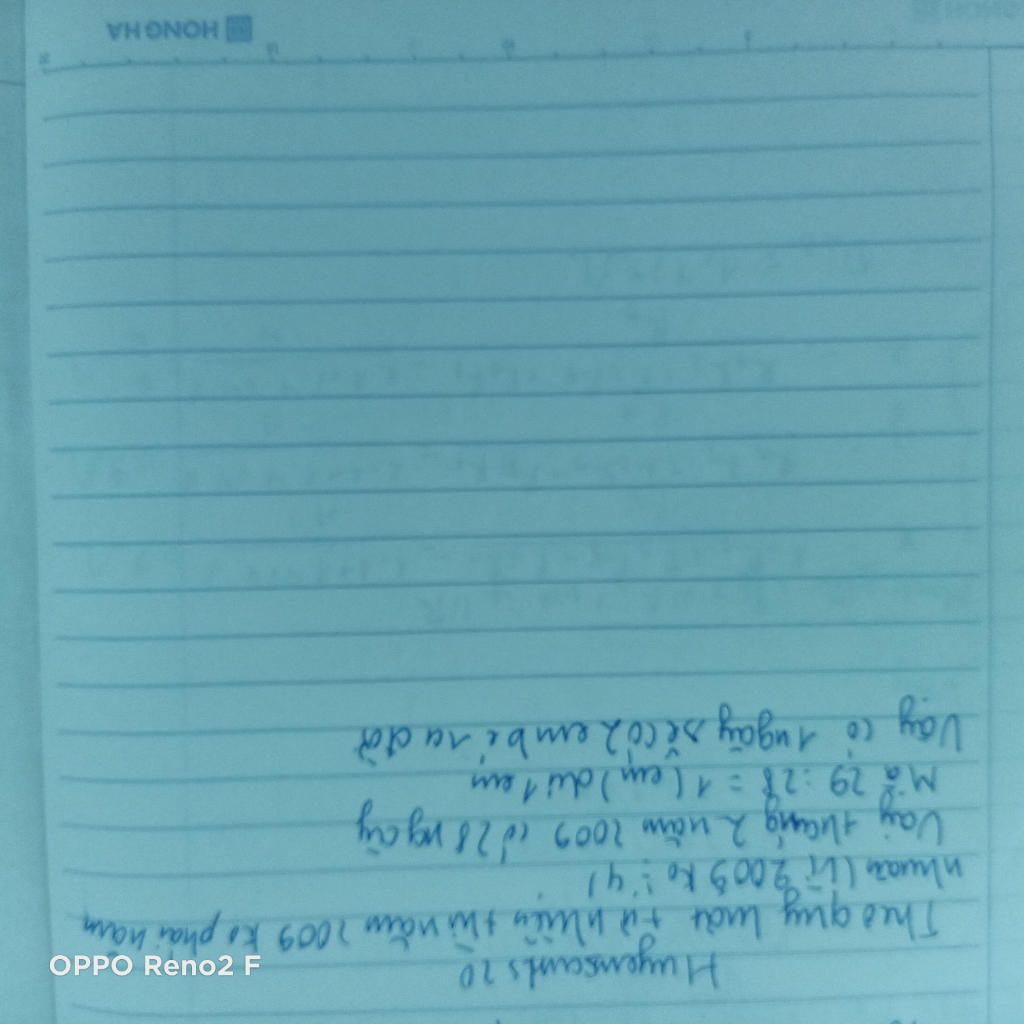 Huyenscuts 20
Theo quy luật tự nhiên thì năm 2009 ko phải năm
nhuận (vì 2009 ko ⋮ 4)
Vậy tháng 2 năm 2009 có 28 ngày
Mà 29 : 28 = 1 (em) dư 1 em
Vậy có 1 ngày sẽ có 2 em bé ra đời
HONG HA
OPPO Reno2 F